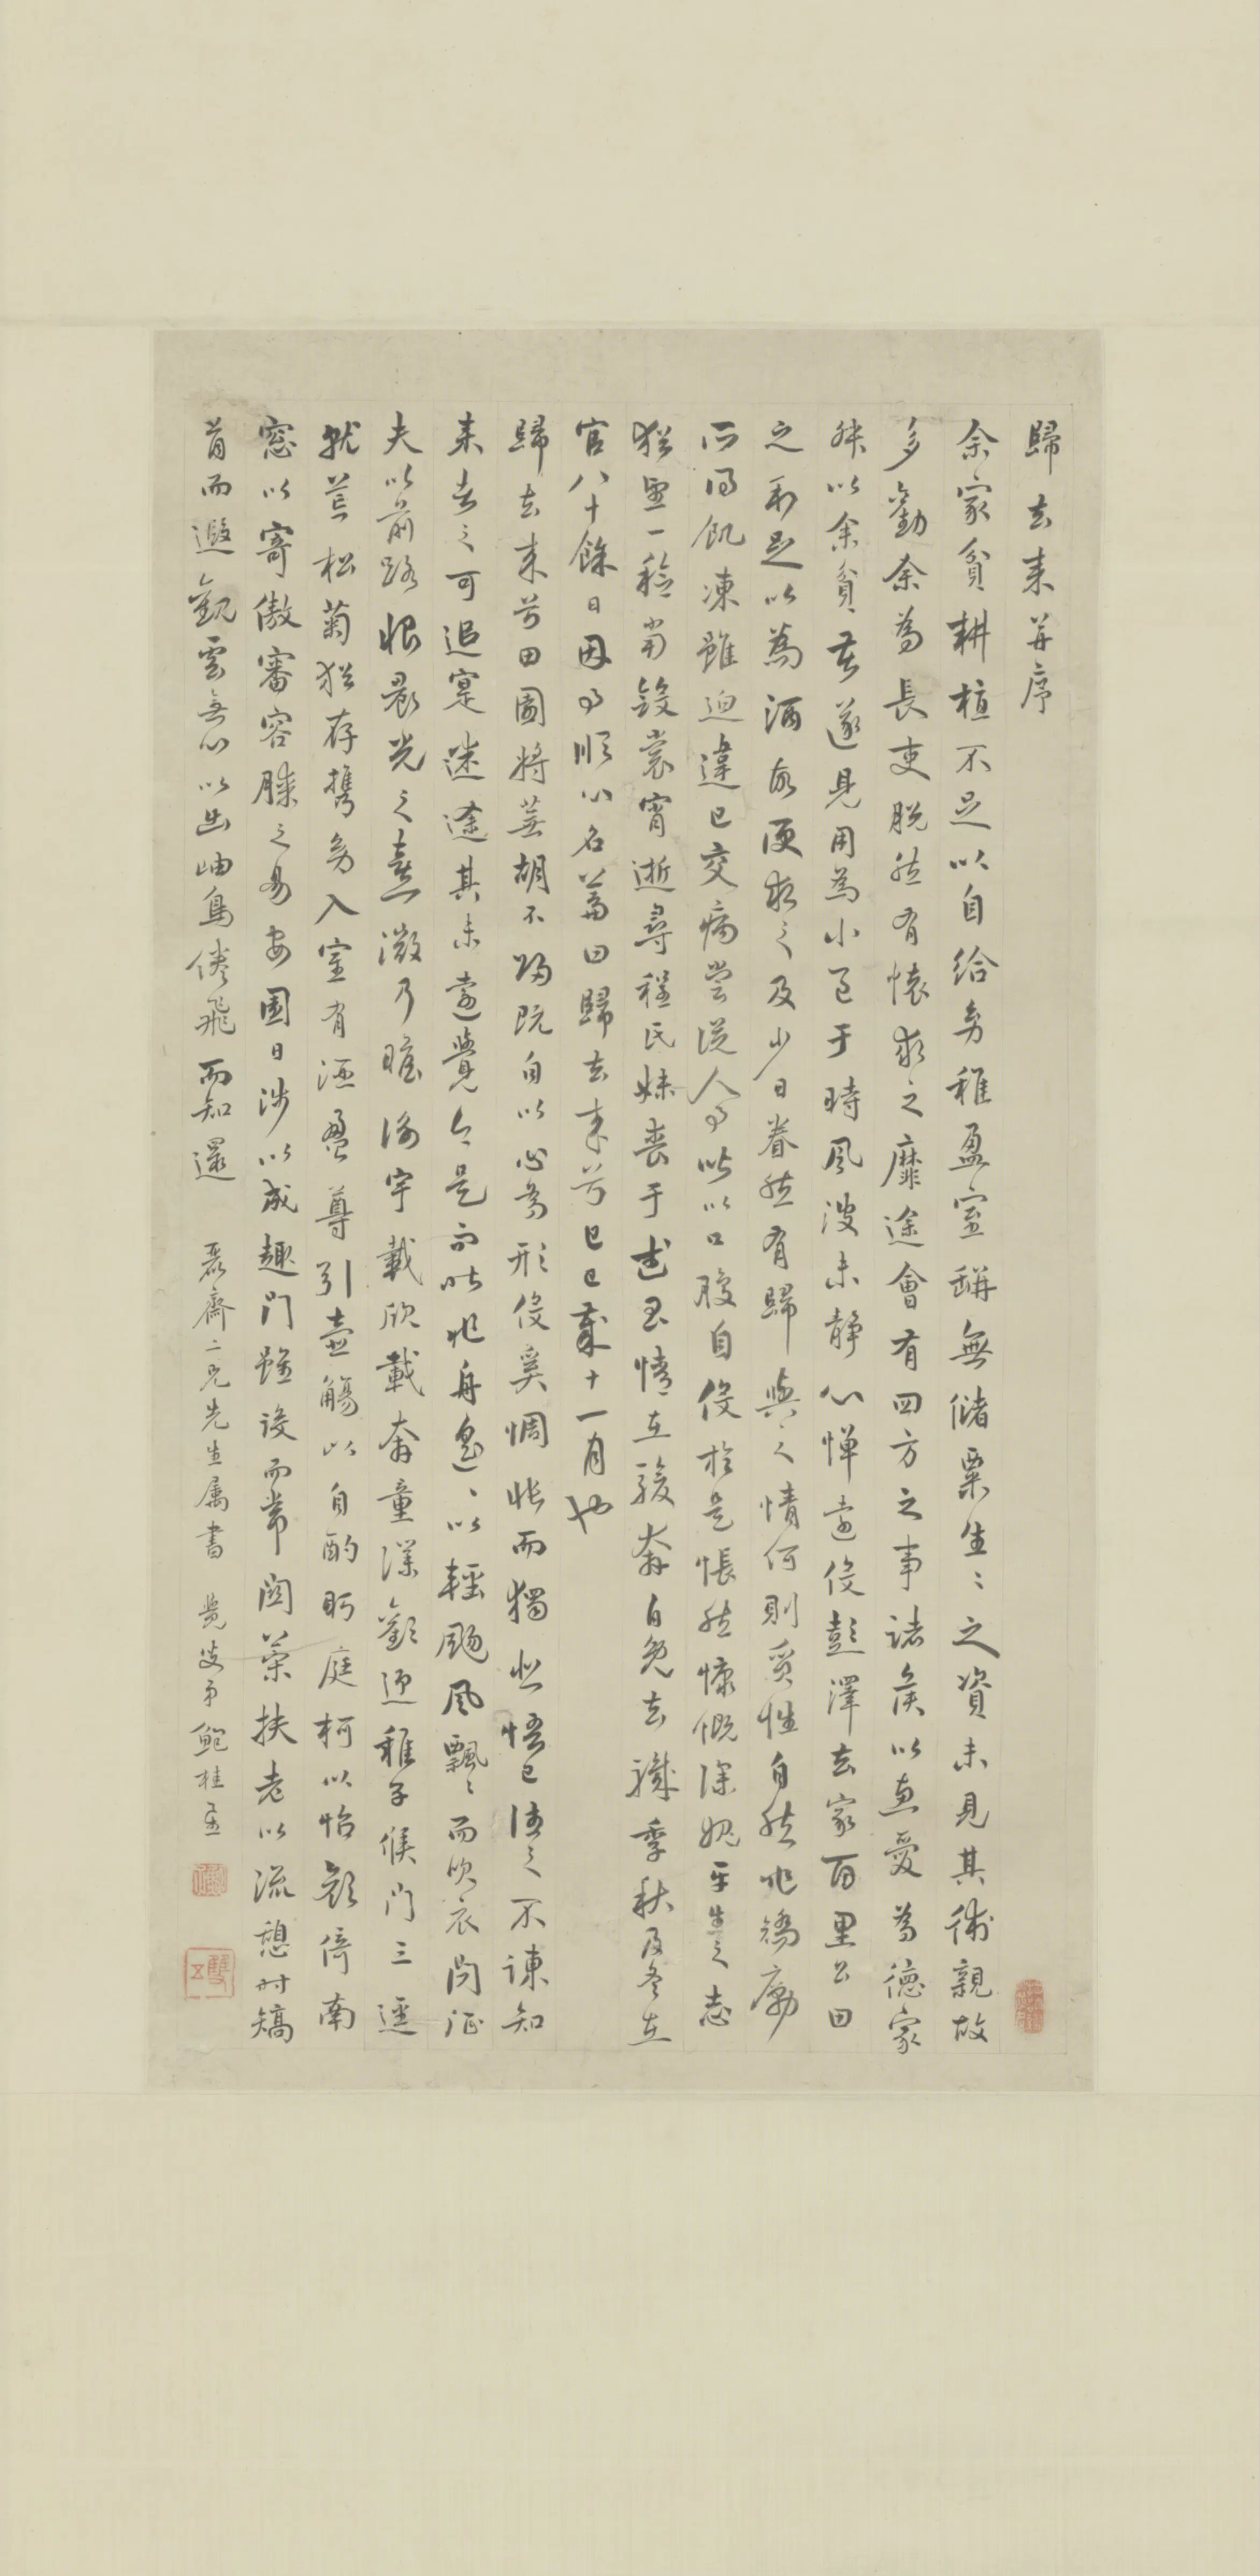 歸去來并序
余家貧耕植不足以自給幼稚盈室缾無儲粟生〻之資未見其術親故
多勸余為長吏脫然有懷求之靡途會有四方之事諸侯以惠愛為德家
叔以余貧苦遂見用為小邑于時風波未靜心憚遠役彭澤去家百里公田
之利足以為酒故便求之及少日眷然有歸與之情何則質性自然非矯勵
所得飢凍雖迫違己交病嘗從人事皆以口腹自役於是悵然慷慨深媿平生之志
猶望一稔當斂裳宵逝尋程氏妹喪于武昌情在駿奔自免去職季秋及冬在
官八十餘日因事順心名篇曰歸去來兮乙巳歲十一月也
歸去來兮田園將蕪胡不歸既自以心為形役奚惆悵而獨悲悟已往之不諫知
來者之可追寔迷途其未遠覺今是而昨非舟遙〻以輕颺風飄〻而吹衣問征
夫以前路恨晨光之熹微乃瞻衡宇載欣載奔童僕歡迎稚子候門三逕
就荒松菊猶存攜幼入室有酒盈尊引壺觴以自酌眄庭柯以怡顏倚南
窓以寄傲審容膝之易安園日涉以成趣門雖設而常關策扶老以流憩時矯
首而遐觀雲無心以出岫鳥倦飛而知還 磊齋二兄先生屬書 覺生弟鮑桂星